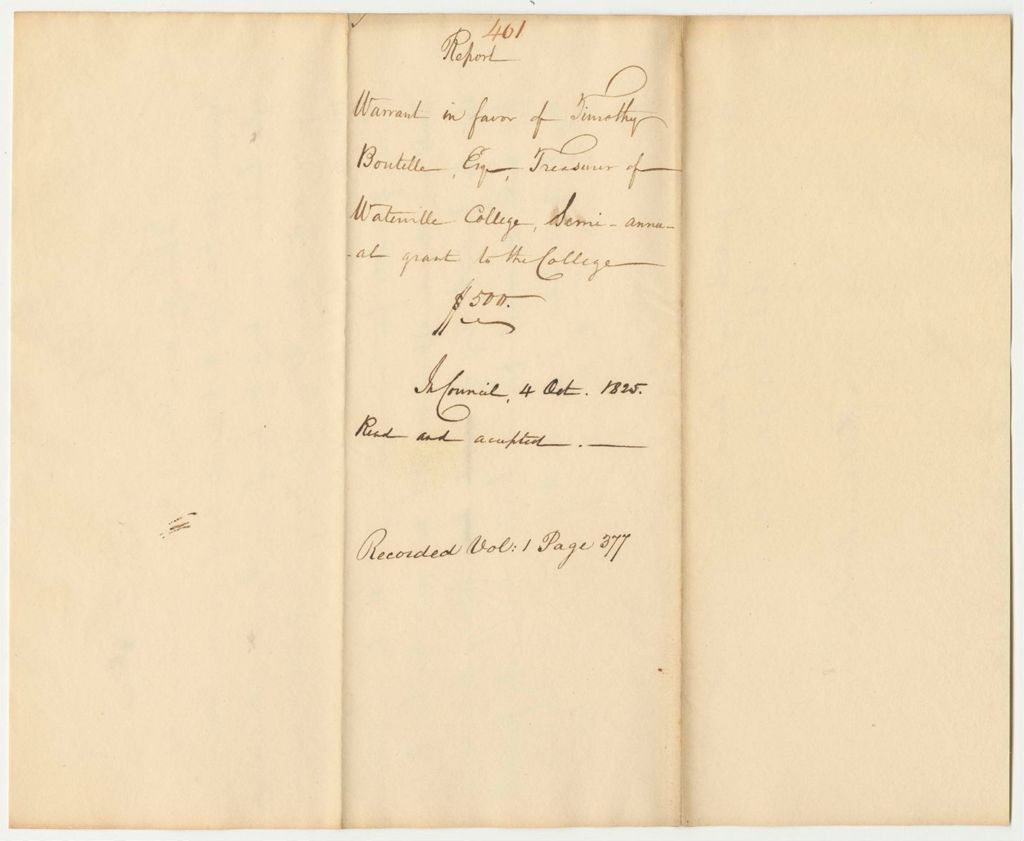 401
Report
Warrant in favor of Timothy
Boutelle, Esq, Treasurer of
Waterville College, Semi-annu-
-al grant to the College
$500.
In Council, 4 Oct. 1825.
Read and accepted.
Recorded Vol: 1 Page 377